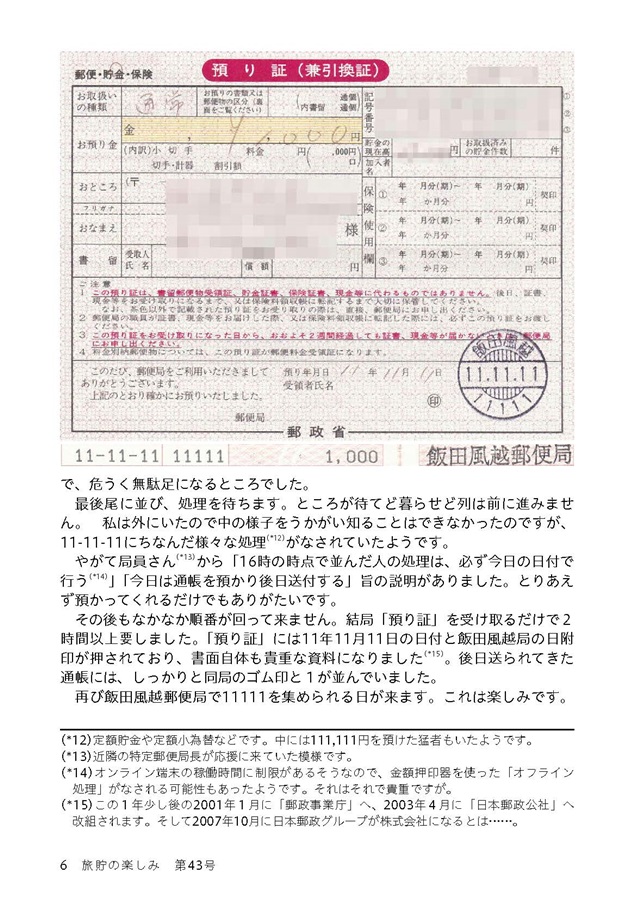 郵便・貯金・保険
預り証（兼引換証）
お取扱いの種類
通常
お預りの書類又は郵便物の区分（裏面をご覧ください）
（内書留 通 個 通 個）
記号番号
お預り金
金 ￥1,000円
（内訳）小切手 料金 円（ ,000円）
切手・計器 割引額 口
貯金の現在高 円
お取扱済みの貯金件数 件
加入者名
おところ
（〒
フリガナ
おなまえ
様
書留
受取人氏名
価額 円
保険使用欄
① 年 月分(期)～ 年 月分(期) 年 か月分 円 契印
② 年 月分(期)～ 年 月分(期) 年 か月分 円 契印
③ 年 月分(期)～ 年 月分(期) 年 か月分 円 契印
ご注意
1 この預り証は、書留郵便物受領証、貯金証書、保険証書、現金等に代わるものではありません。後日、証書、
現金等をお受け取りになるまで、又は保険料領収帳に転記するまで大切に保管してください。
なお、茶色以外で記載された預り証をお受け取りの際は、直接、郵便局にお申し出ください。
2 郵便局の職員が証書、現金等をお届けした際、又は保険料領収帳に転記した際には、必ずこの預り証をお渡しください。
3 この預り証をお受け取りになった日から、おおよそ2週間経過しても証書、現金等が届かな
郵便局
にお申し出ください。
4 料金別納郵便物については、この預り証が郵便料金受領証になります。
このたび、郵便局をご利用いただきまして
ありがとうございます。
上記のとおり確かにお預りいたしました。
預り年月日 11年11月11日
受領者氏名
印
郵便局
飯田風越
11.11.11
11111
郵政省
11-11-11 11111 1,000 飯田風越郵便局
で、危うく無駄足になるところでした。
最後尾に並び、処理を待ちます。ところが待てど暮らせど列は前に進みませ
ん。 私は外にいたので中の様子をうかがい知ることはできなかったのですが、
11-11-11にちなんだ様々な処理(*12)がなされていたようです。
やがて局員さん(*13)から「16時の時点で並んだ人の処理は、必ず今日の日付で
行う(*14)」「今日は通帳を預かり後日送付する」旨の説明がありました。とりあえ
ず預かってくれるだけでもありがたいです。
その後もなかなか順番が回って来ません。結局「預り証」を受け取るだけで2
時間以上要しました。「預り証」には11年11月11日の日付と飯田風越局の日附
印が押されており、書面自体も貴重な資料になりました(*15)。後日送られてきた
通帳には、しっかりと同局のゴム印と1が並んでいました。
再び飯田風越郵便局で11111を集められる日が来ます。これは楽しみです。
(*12)定額貯金や定額小為替などです。中には111,111円を預けた猛者もいたようです。
(*13)近隣の特定郵便局長が応援に来ていた模様です。
(*14)オンライン端末の稼働時間に制限があるそうなので、金額押印器を使った「オフライン
処理」がなされる可能性もあったようです。それはそれで貴重ですが。
(*15)この1年少し後の2001年1月に「郵政事業庁」へ、2003年4月に「日本郵政公社」へ
改組されます。そして2007年10月に日本郵政グループが株式会社になるとは……。
6 旅貯の楽しみ 第43号